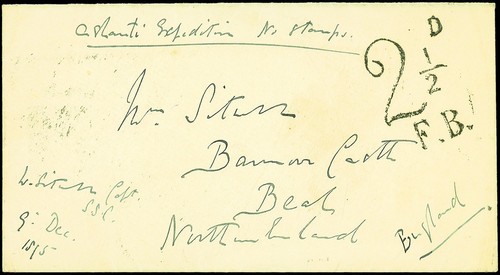 Ashanti Expedition No Stamps.
2 D 1/2
F.B.
Mrs Sitwell
Barmoor Castle
Beal
Northumberland
England
W. Sitwell Capt.
9. Dec.
1895